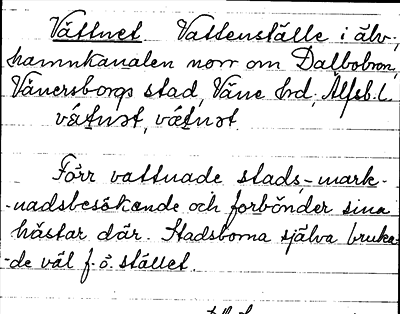 Vättnet Vattenställe i älv,
hamnkanalen norr om Dalbobron,
Vänersborgs stad, Väne hrd, Älfsb. l.
Förr vattnade stads-, mark-
-nadsbesökande och forbönder sina
hästar där. Stadsborna själva bruka-
-de väl f. ö. stället.